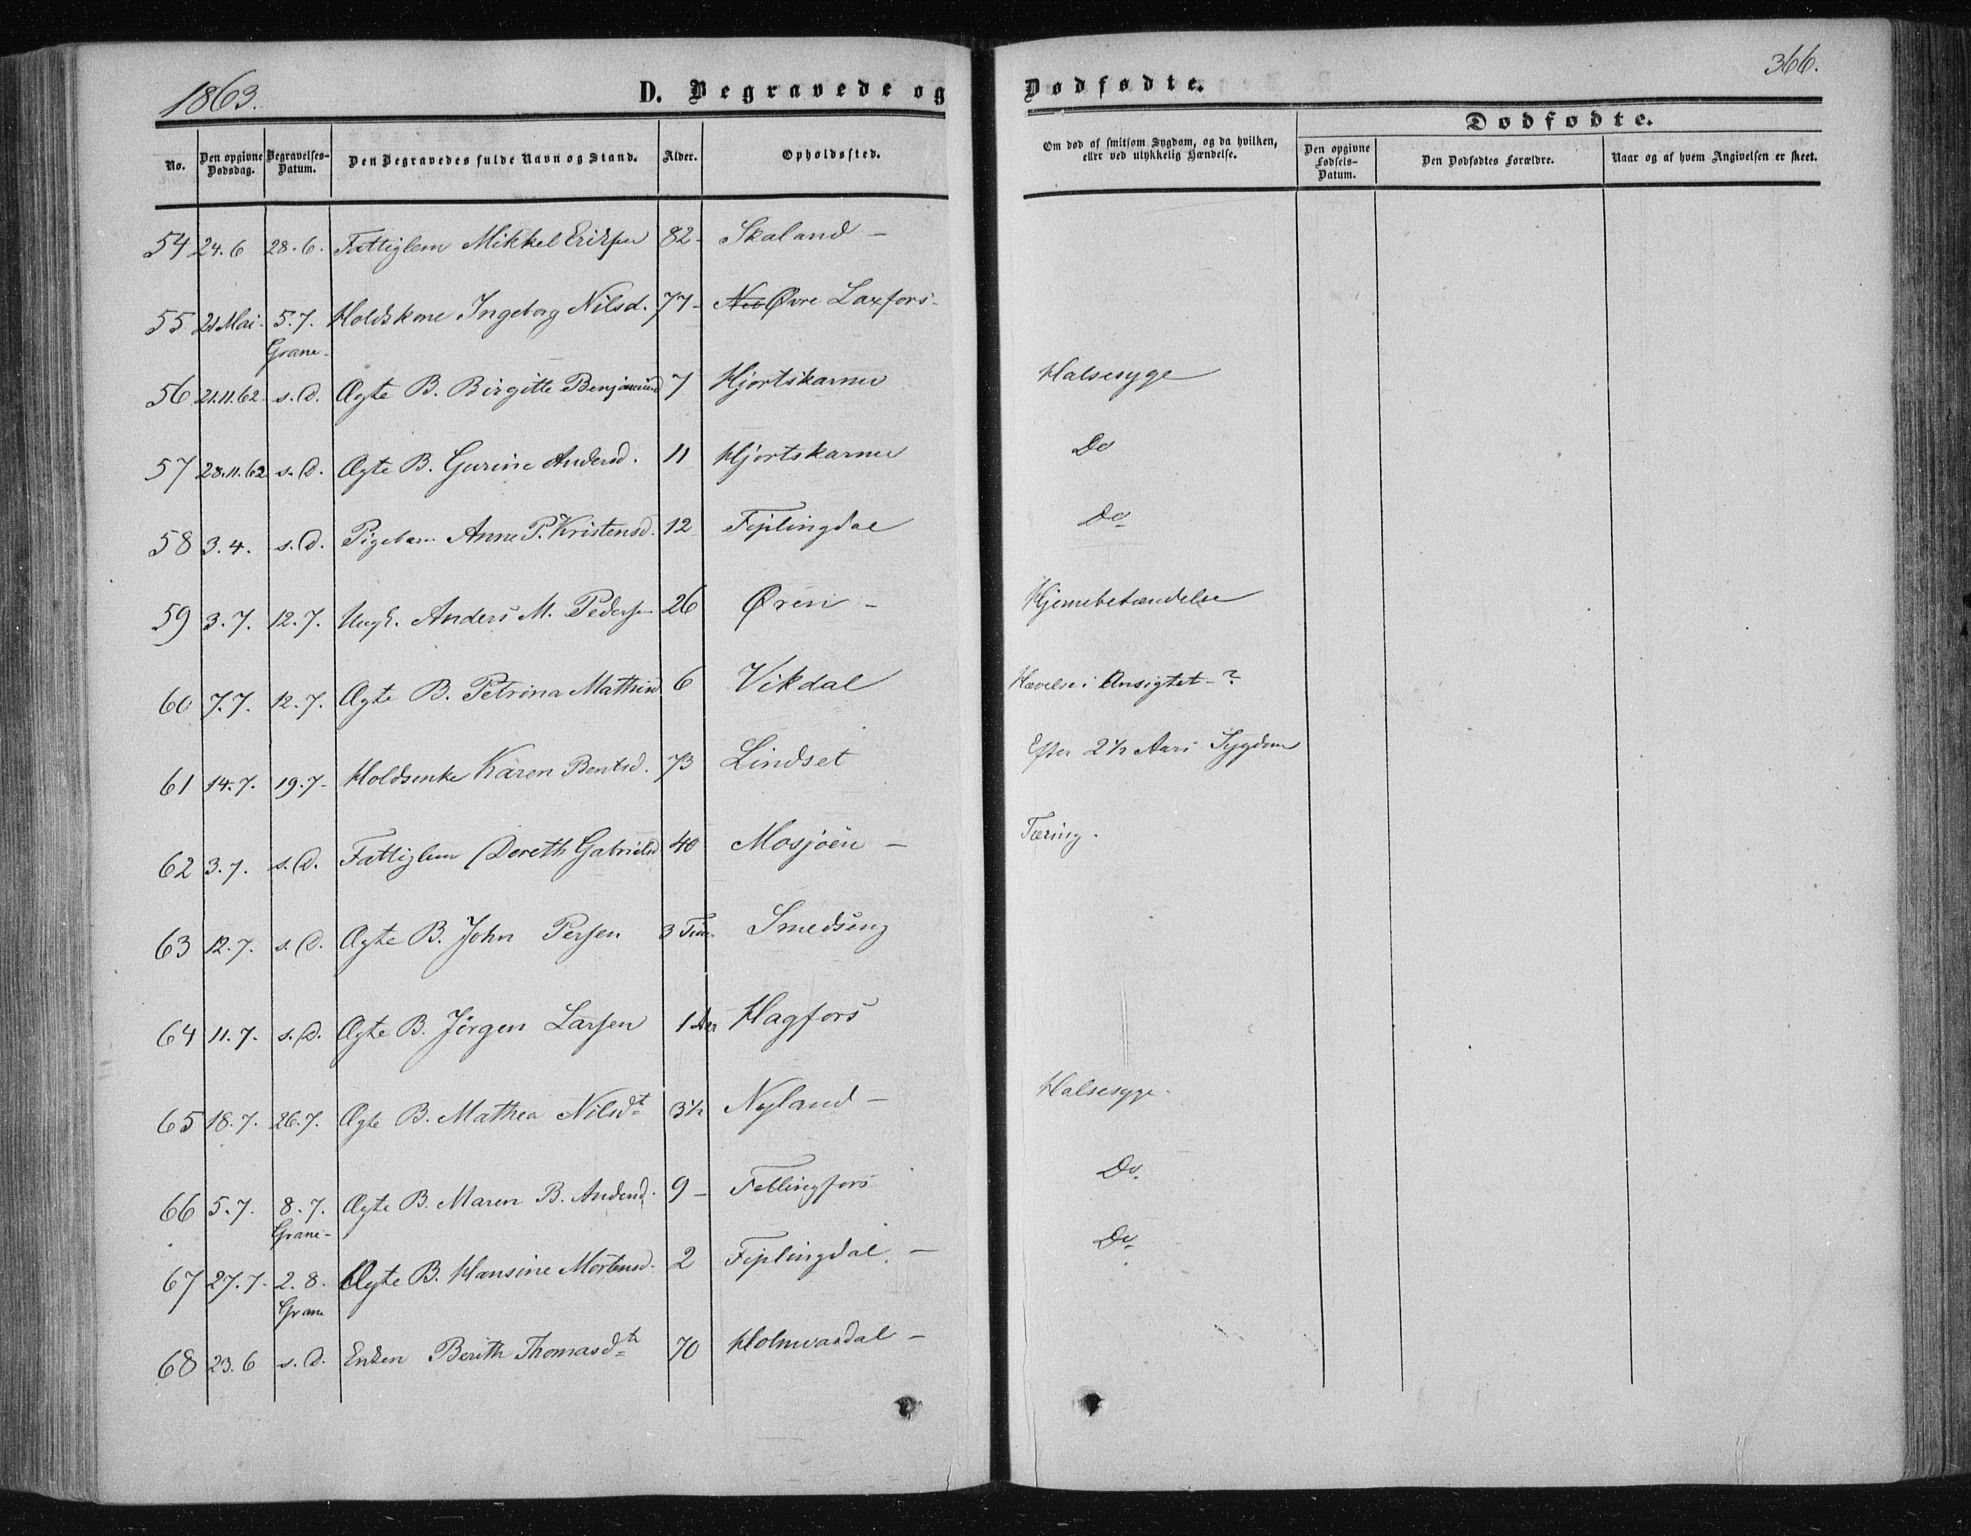 1863.
D. Begravede og Dødfødte.
366.
Dødfødte.
No.
Den opgivne Dødsdag.
Begravelses-Datum.
Den Begravedes fulde Navn og Stand.
Alder.
Opholdssted.
Om død af smitsom Sygdom, og da hvilken, eller ved ulykkelig Hændelse.
Den opgivne Fødsels-Datum.
Den Dødfødtes Forældre.
Naar og af hvem Angivelsen er skeet.
54 24.6 28.6. Fattiglem Mikkel Eriksen 82- Skaland -
55 21 Mai- 5.7. Grane- Holdskone Ingeborg Nilsd. 77- Øvre Laxfors-
56 21.11.62- s.D. Ægte B. Birgitte Benjamind 7 Hjortskarmer Halsesyge
57 28.11.62 s.D. Ægte B. Gurine Andersd. 11 Hjortskarmer Do
58 3.4. s.D. Pigebarn Anne P. Kristensd. 12 Fiplingdal Do
59 3.7. 12.7. Ungk. Anders M. Pedersen 26 Øren - Hjernebetændelse
60 7.7. 12.7. Ægte B. Petrina Mathisd 6 Vikdal Hævelse i Ansigtet-?
61 14.7. 19.7- Holdsenke Karen Bentsd. 73 Lindset Efter 2½ Aars Sygdom
62 3.7. s.D. Fattiglem Doreth Gabrielsd 40 Mosjøen - Tæring.
63 12.7. s.D. Ægte B. John Persen 3 Tim. Smedseng
64 11.7. s.D. Ægte B. Jørgen Larsen 1 Aar Hagfors
65 18.7. 26.7. Ægte B. Mathea Nilsdt 3½ Nyland - Halsesyge.
66 5.7 8.7. Grane- Ægte B. Maren B. Andersd. 9 - Fellingfors Do.
67 27.7- 2.8. Grane Ægte B. Hansine Mortensd. 2 Fiplingdal. - Do
68 23.6 s.D. Enken Berith Thomasdtr 70 Holmvasdal -